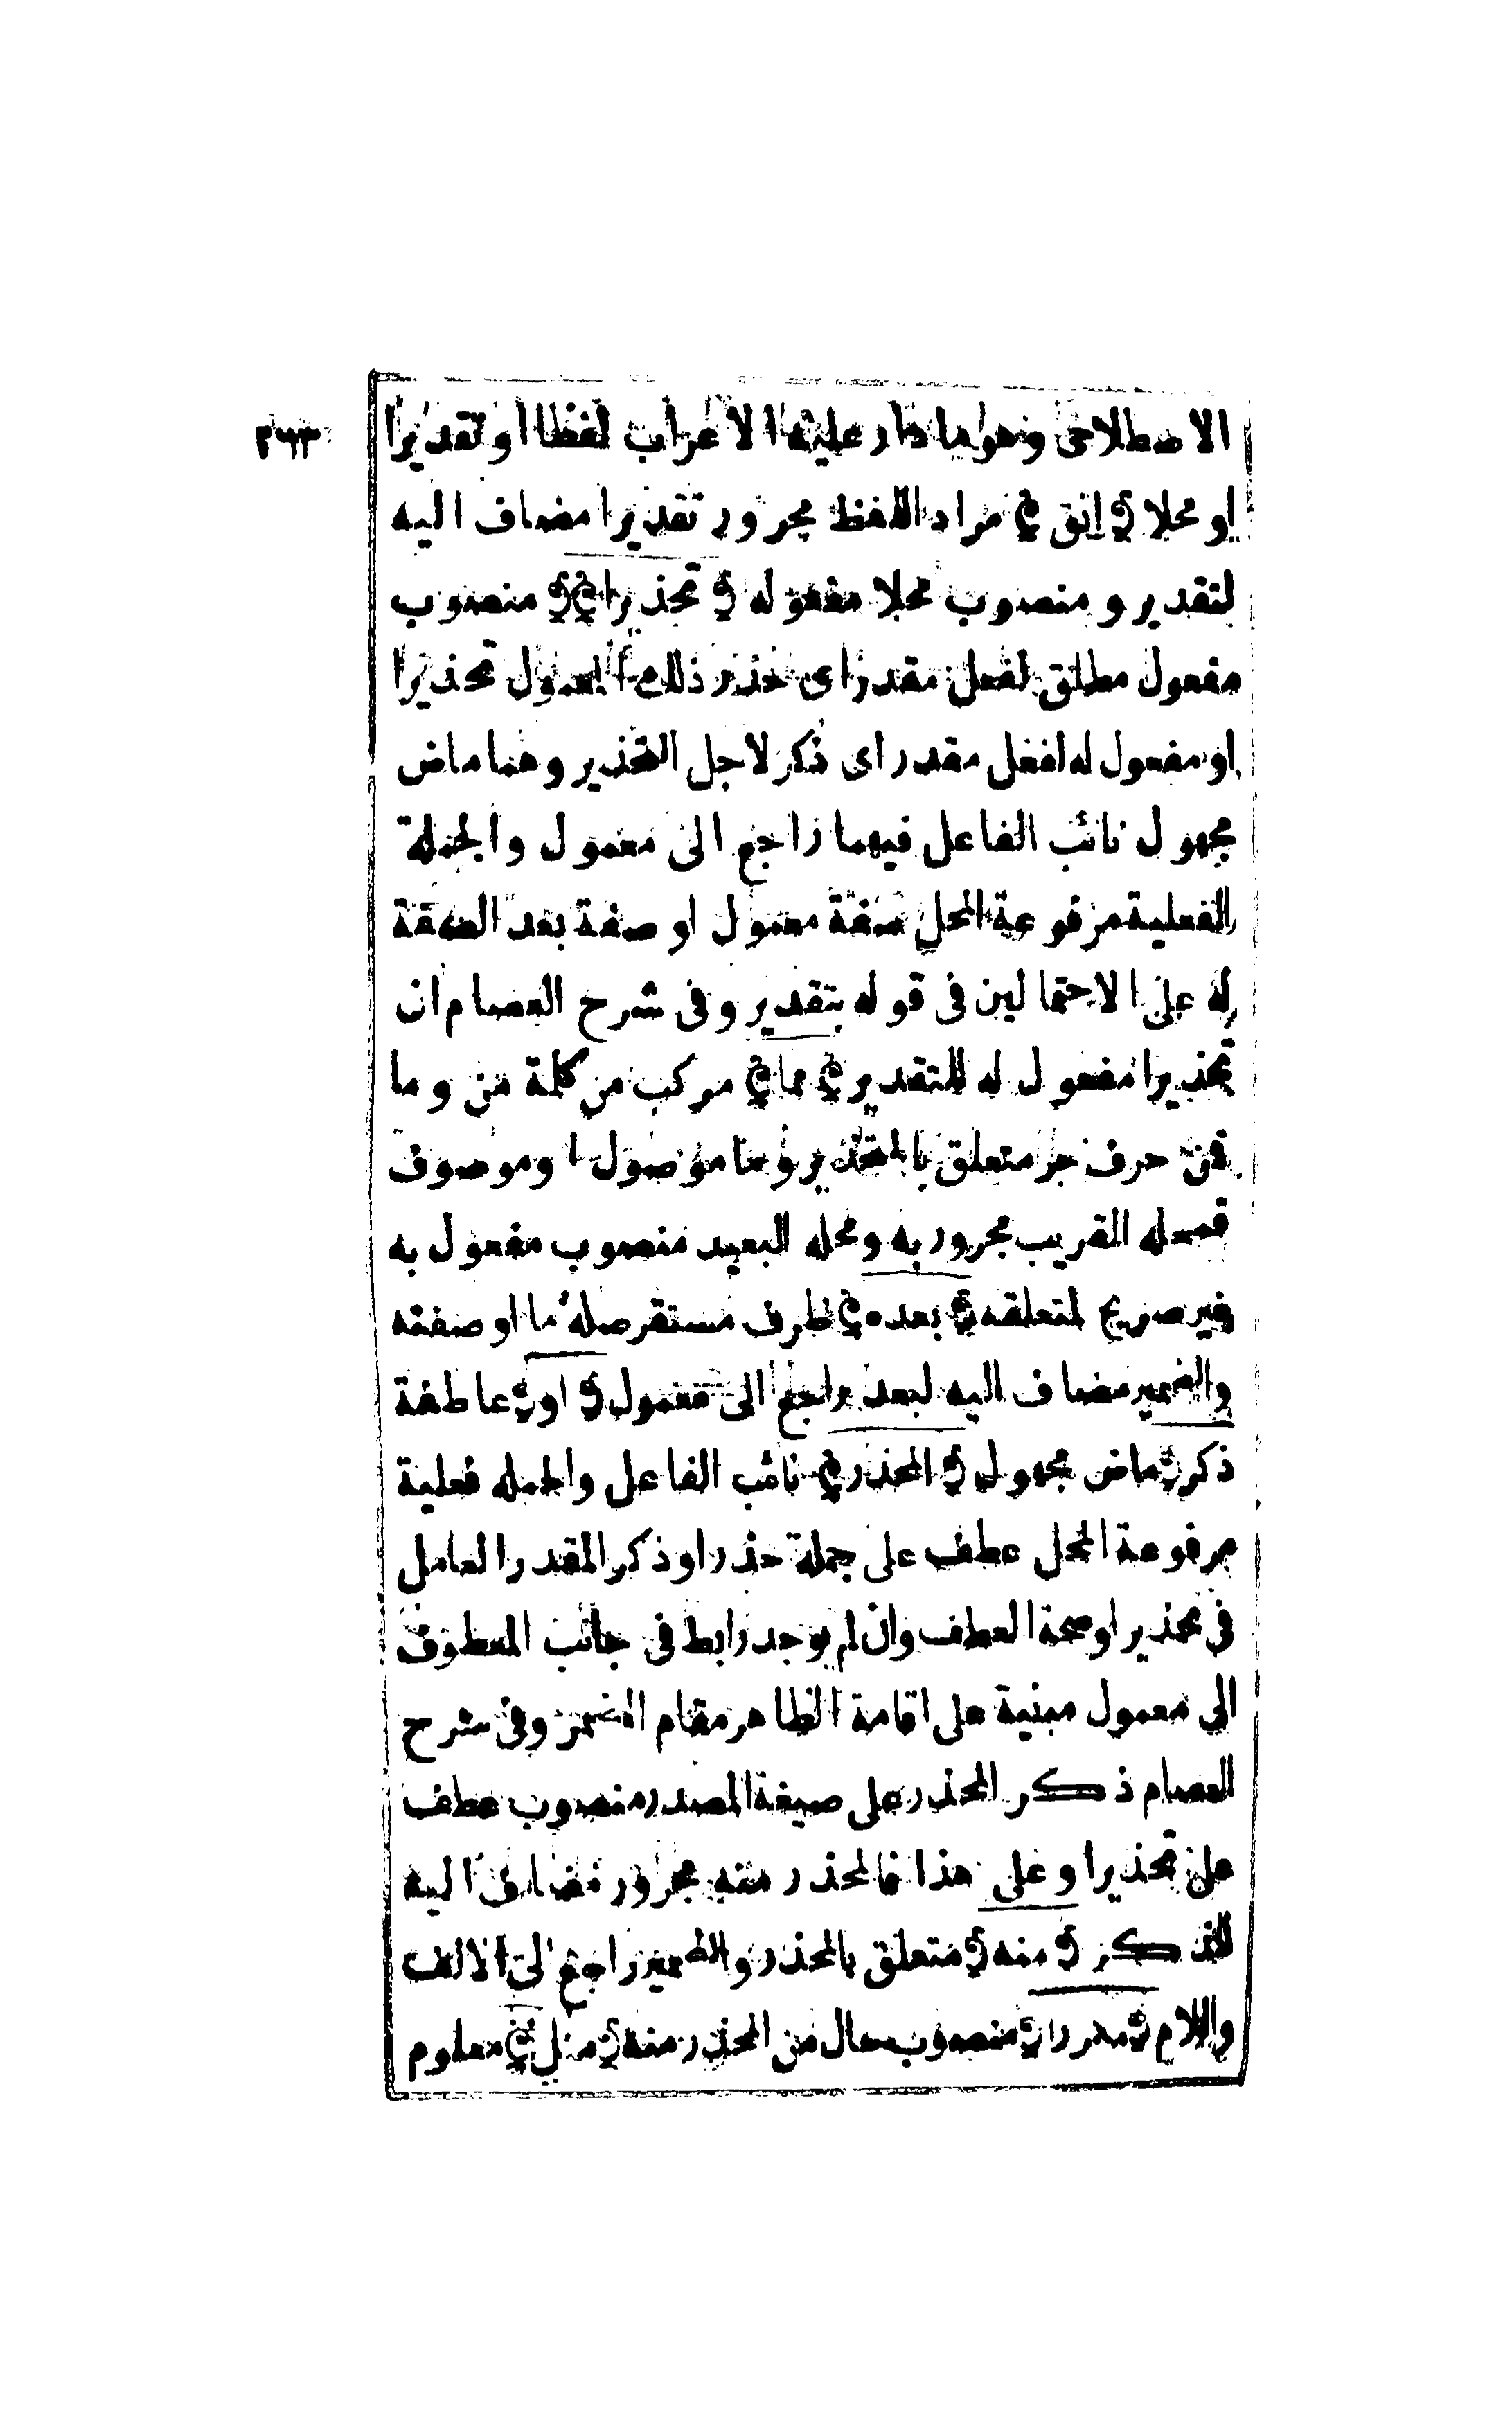 ٢٦٣
الاصطلاحى وهو ما دار عليه الاعراب لفظا او تقديرا
او محلا ﴿ اتق ﴾ مراد اللفظ مجرور تقديرا مضاف اليه
لتقدير ومنصوب محلا مفعوله ﴿ تحذيرا ﴾ منصوب
مفعول مطلق لفعل مقدر اى حذر ذلك المعمول تحذيرا
او مفعول له لفعل مقدر اى ذكر لاجل التحذير وهما ماض
مجهول نائب الفاعل فيهما راجع الى معمول والجملة
الفعلية مرفوعة المحل صفة معمول او صفة بعد الصفة
له على الاحتمالين فى قوله بتقدير وفى شرح العصام ان
تحذيرا مفعول له للتقدير ﴿ مما ﴾ مركب من كلمة من وما
فمن حرف جر متعلق بالتحذير وما موصول او موصوف
فمحله القريب مجرور به ومحله البعيد منصوب مفعول به
غير صريح لمتعلقه ﴿ بعده ﴾ ظرف مستقر صلة ما او صفته
والضمير مضاف اليه لبعد راجع الى معمول ﴿ او ﴾ عاطفة
ذكر ﴾ ماض مجهول ﴿ المحذر ﴾ نائب الفاعل والجمله فعلية
مرفوعة المحل عطف على جملة حذر او ذكر المقدر العامل
فى تحذيرا وصحة العطف وان لم يوجد رابط فى جانب المعطوف
الى معمول مبنية على اقامة الظاهر مقام المضمر وفى شرح
العصام ذكر المحذر على صيغة المصدر منصوب عطف
على تحذيرا وعلى هذا فالمحذر منه مجرور مضاف اليه
للذكر ﴿ منه ﴾ متعلق بالمحذر والضمير راجع الى الالف
واللام ﴿ مكررا ﴾ منصوب حال من المحذر منه ﴿ مثل ﴾ معلوم